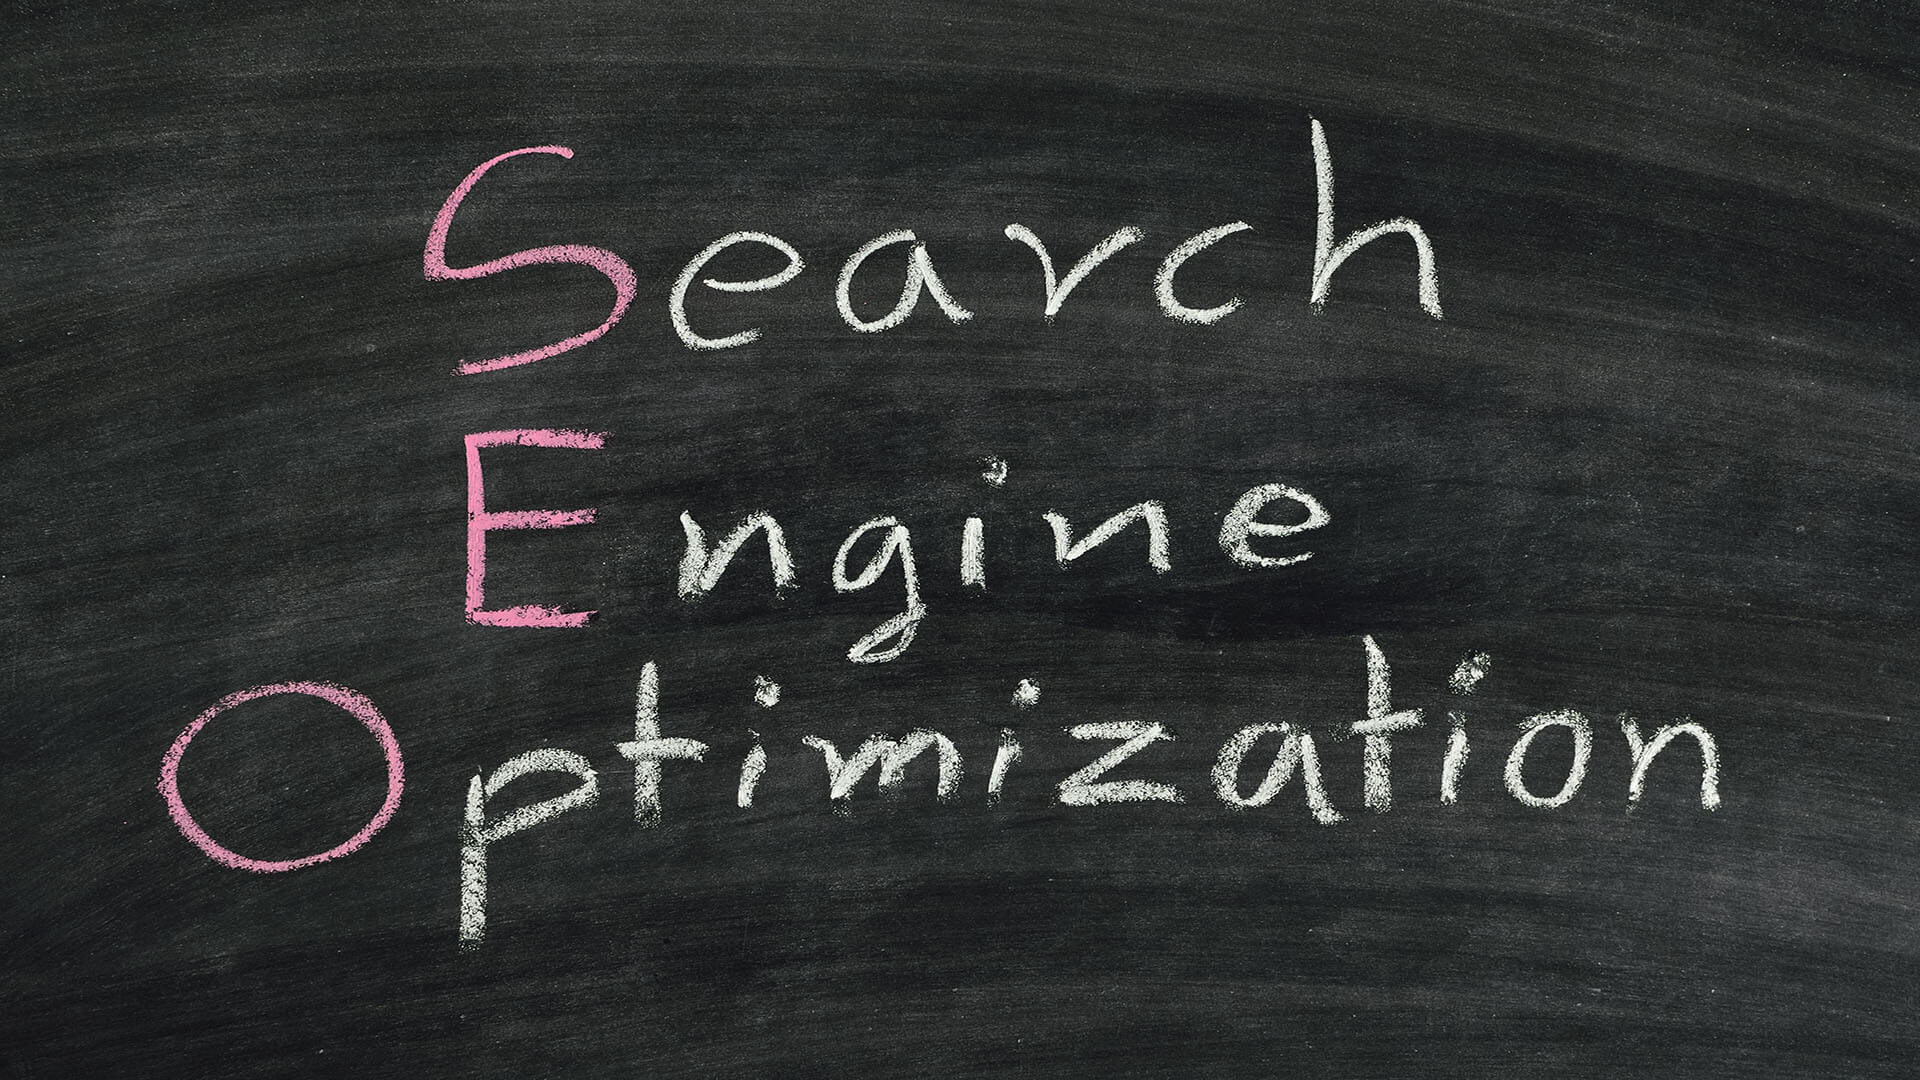 Search
Engine
Optimization